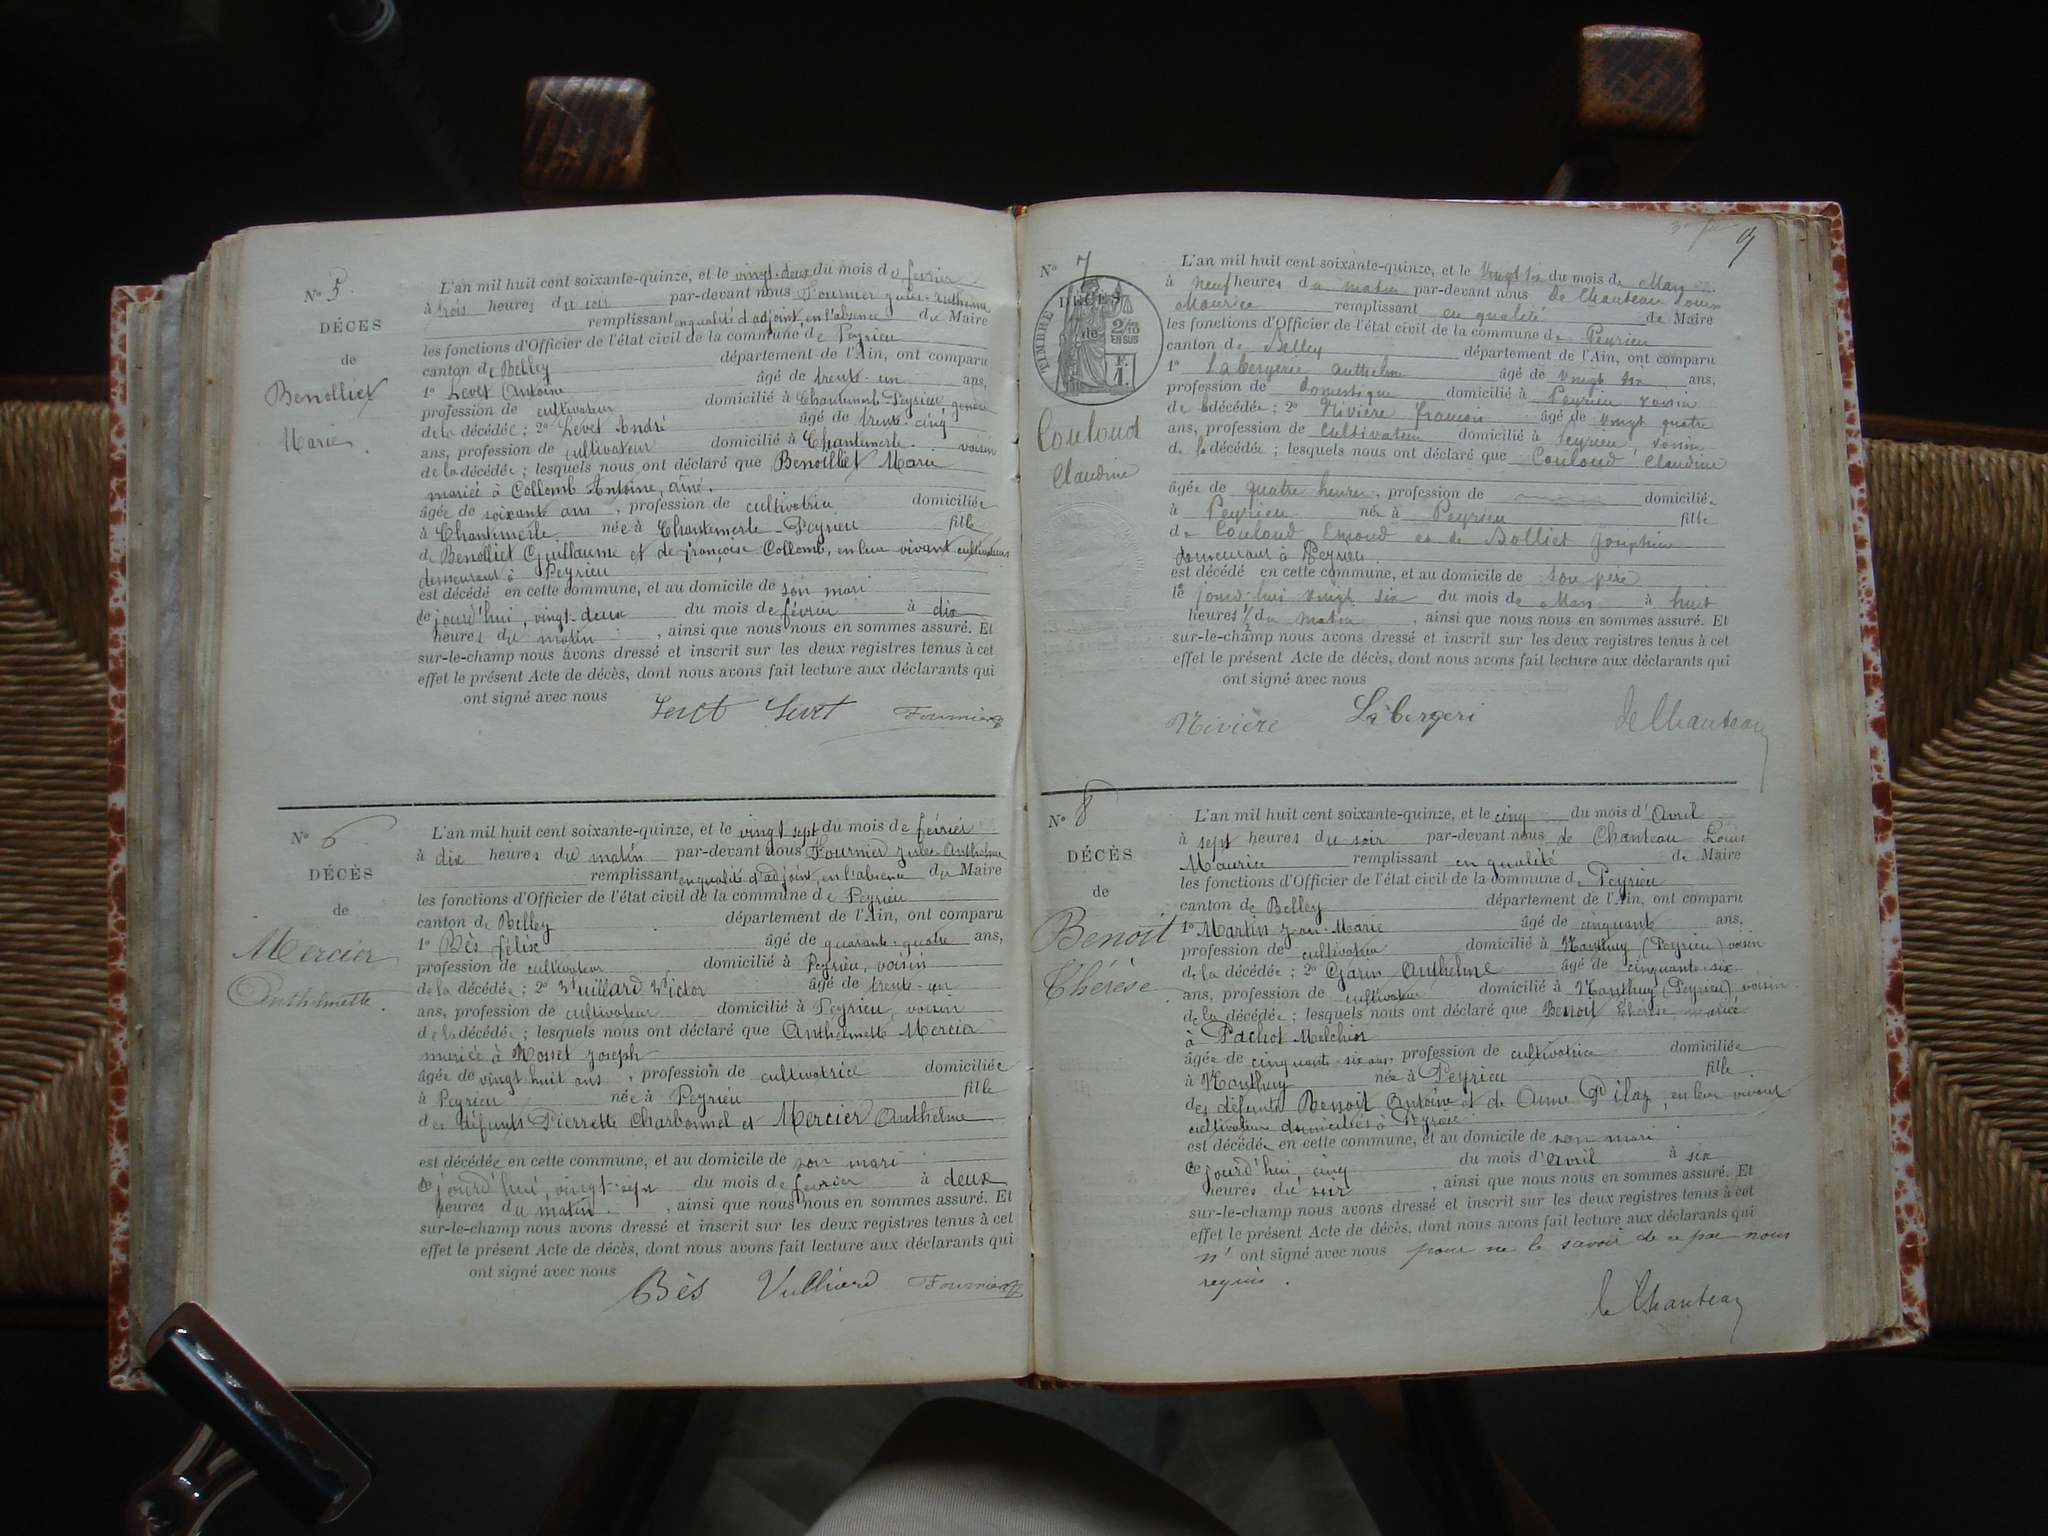 N° 5
DÉCES
de
Benolliet
Marie
L'an mil huit cent soixante-quinze, et le vingt-deux du mois de février
à trois heures du soir par-devant nous Fournier Jules-Anthelme
remplissant en qualité d'adjoint, en l'absence du Maire
les fonctions d'Officier de l'état civil de la commune de Peyrieu
canton de Belley département de l'Ain, ont comparu
1° Levet Antoine âgé de trente-un ans,
profession de cultivateur domicilié à Chantemerle-Peyrieu gendre
de la décédée; 2° Levet André âgé de trente-cinq
ans, profession de cultivateur domicilié à Chantemerle voisin
de la décédée; lesquels nous ont déclaré que Benolliet Marie
mariée à Collomb Antoine, aîné.
âgée de soixante ans, profession de cultivatrice domiciliée
à Chantemerle née à Chantemerle-Peyrieu fille
de Benolliet Guillaume et de Françoise Collomb, en leur vivant cultivateurs
demeurant à Peyrieu
est décédé en cette commune, et au domicile de son mari
ce jourd'hui, vingt-deux du mois de février à dix
heures du matin, ainsi que nous nous en sommes assuré. Et
sur-le-champ nous avons dressé et inscrit sur les deux registres tenus à cet
effet le présent Acte de décès, dont nous avons fait lecture aux déclarants qui
ont signé avec nous
Levet Levet Fournier
N° 6
DÉCÈS
de
Mercier
Anthelmette
L'an mil huit cent soixante-quinze, et le vingt sept du mois de février
à dix heures du matin par-devant nous Fournier Jules Anthelme
remplissant en qualité d'adjoint, en l'absence du Maire
les fonctions d'Officier de l'état civil de la commune de Peyrieu
canton de Belley département de l'Ain, ont comparu
1° Bès félix âgé de quarante-quatre ans,
profession de cultivateur domicilié à Peyrieu, voisin
de la décédée; 2° Vuillard Victor âgé de trente-un
ans, profession de cultivateur domicilié à Peyrieu, voisin
de la décédée; lesquels nous ont déclaré que Anthelmette Mercier
mariée à Mosset Joseph
âgée de vingt-huit ans, profession de cultivatrice domiciliée
à Peyrieu née à Peyrieu fille
des défunts Pierrette Charbonnel et Mercier Anthelme
est décédée en cette commune, et au domicile de son mari
ce jourd'hui, vingt-sept du mois de février à deux
heures du matin, ainsi que nous nous en sommes assuré. Et
sur-le-champ nous avons dressé et inscrit sur les deux registres tenus à cet
effet le présent Acte de décès, dont nous avons fait lecture aux déclarants qui
ont signé avec nous
Bès Vulliard Fournier
9
N° 7
DÉCÈS
de
TIMBRE
2/10
EN SUS
F.
1.
Couloud
Claudine
L'an mil huit cent soixante-quinze, et le vingt six du mois de Mars
à neuf heures du matin par-devant nous de Chanteau Louis
Maurice remplissant en qualité de Maire
les fonctions d'Officier de l'état civil de la commune de Peyrieu
canton de Belley département de l'Ain, ont comparu
1° Labergerie Anthelme âgé de vingt six ans,
profession de domestique domicilié à Peyrieu voisin
de la décédée; 2° Nivière françois âgé de vingt quatre
ans, profession de cultivateur domicilié à Peyrieu voisin
de la décédée; lesquels nous ont déclaré que Couloud Claudine
âgée de quatre heures, profession de domiciliée
à Peyrieu née à Peyrieu fille
de Couloud Emond et de Bolliet Joséphine
demeurant à Peyrieu
est décédé en cette commune, et au domicile de son père
le jourd'hui vingt six du mois de Mars à huit
heures 1/2 du matin, ainsi que nous nous en sommes assuré. Et
sur-le-champ nous avons dressé et inscrit sur les deux registres tenus à cet
effet le présent Acte de décès, dont nous avons fait lecture aux déclarants qui
ont signé avec nous
Nivière Labergeri de Chanteau
N° 8
DÉCÈS
de
Benoit
Thérèse
L'an mil huit cent soixante-quinze, et le cinq du mois d'Avril
à sept heures du soir par-devant nous de Chanteau Louis
Maurice remplissant en qualité de Maire
les fonctions d'Officier de l'état civil de la commune de Peyrieu
canton de Belley département de l'Ain, ont comparu
1° Martin Jean-Marie âgé de cinquante ans,
profession de cultivateur domicilié à Nanthuy (Peyrieu) voisin
de la décédée; 2° Garin Anthelme âgé de cinquante-six
ans, profession de cultivateur domicilié à Nanthuy (Peyrieu) voisin
de la décédée; lesquels nous ont déclaré que Benoit Thérèse, mariée
à Pachot Melchior
âgée de cinquante-six ans, profession de cultivatrice domiciliée
à Nanthuy née à Peyrieu fille
des défunts Benoit Antoine et de Anne Pilaz, en leur vivant
cultivateurs domiciliés à Peyrieu
est décédée en cette commune, et au domicile de son mari
ce jourd'hui cinq du mois d'avril à six
heures du soir, ainsi que nous nous en sommes assuré. Et
sur-le-champ nous avons dressé et inscrit sur les deux registres tenus à cet
effet le présent Acte de décès, dont nous avons fait lecture aux déclarants qui
n'ont signé avec nous pour ne le savoir de ce par nous
requis.
de Chanteau